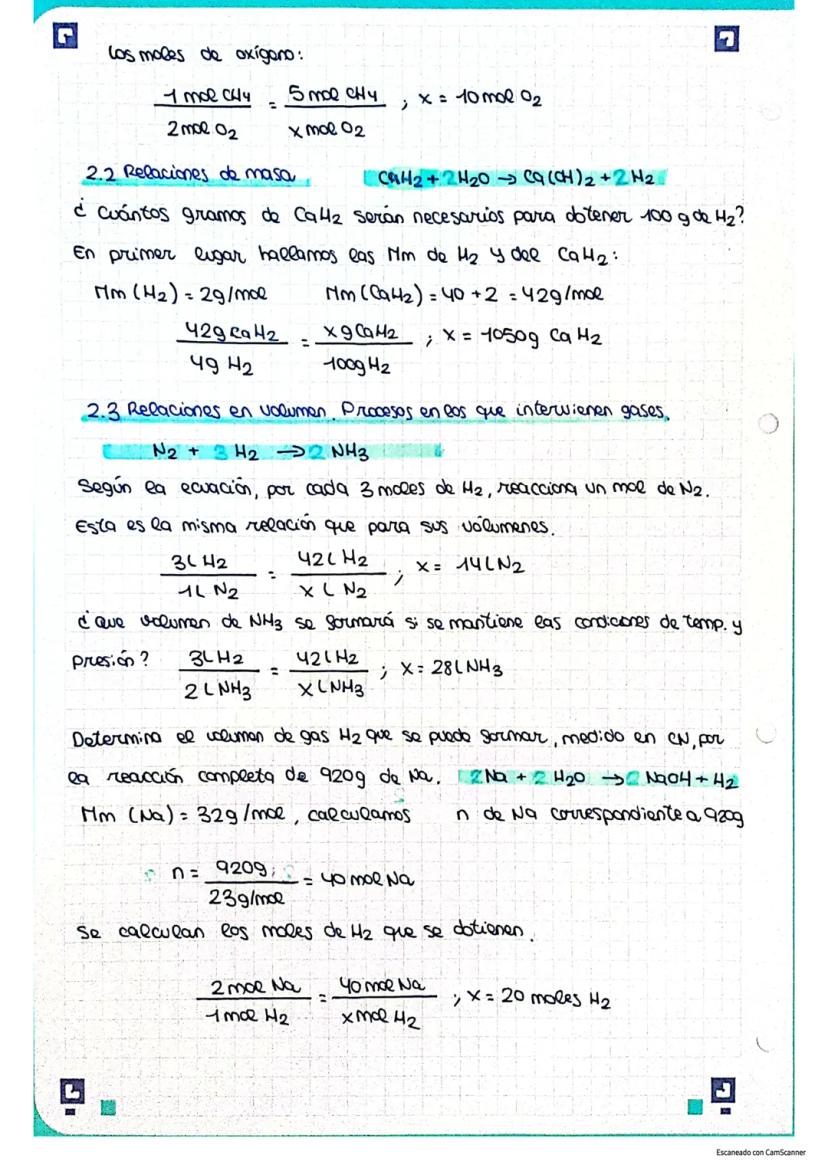 Los moles de oxígeno:
1 mol CH4 / 2 mol O2 = 5 mol CH4 / x mol O2 ; x = 10 mol O2
2.2 Relaciones de masa CaH2 + 2 H2O → Ca(OH)2 + 2 H2
¿Cuántos gramos de CaH2 serán necesarios para obtener 100 g de H2?
En primer lugar hallamos las Mm de H2 y del CaH2:
Mm (H2) = 2g/mol Mm (CaH2) = 40 + 2 = 42g/mol
42g CaH2 / 4g H2 = x g CaH2 / 100g H2 ; x = 1050g CaH2
2.3 Relaciones en volumen. Procesos en los que intervienen gases.
N2 + 3 H2 → 2 NH3
Según la ecuación, por cada 3 moles de H2, reacciona un mol de N2.
Esta es la misma relación que para sus vólumenes.
3L H2 / 1L N2 = 42L H2 / x L N2 ; x = 14L N2
¿Que volumen de NH3 se formará si se mantiene las condiciones de temp. y
presión? 3L H2 / 2L NH3 = 42L H2 / x L NH3 ; x = 28L NH3
Determina el volumen de gas H2 que se puede formar, medido en CN, por
la reacción completa de 920g de Na. 2 Na + 2 H2O → 2 NaOH + H2
Mm (Na) = 32g/mol, calculamos n de Na correspondiente a 920g
n = 920g / 23g/mol = 40 mol Na
Se calculan los moles de H2 que se obtienen.
2 mol Na / 1 mol H2 = 40 mol Na / x mol H2 ; x = 20 moles H2
Escaneado con CamScanner